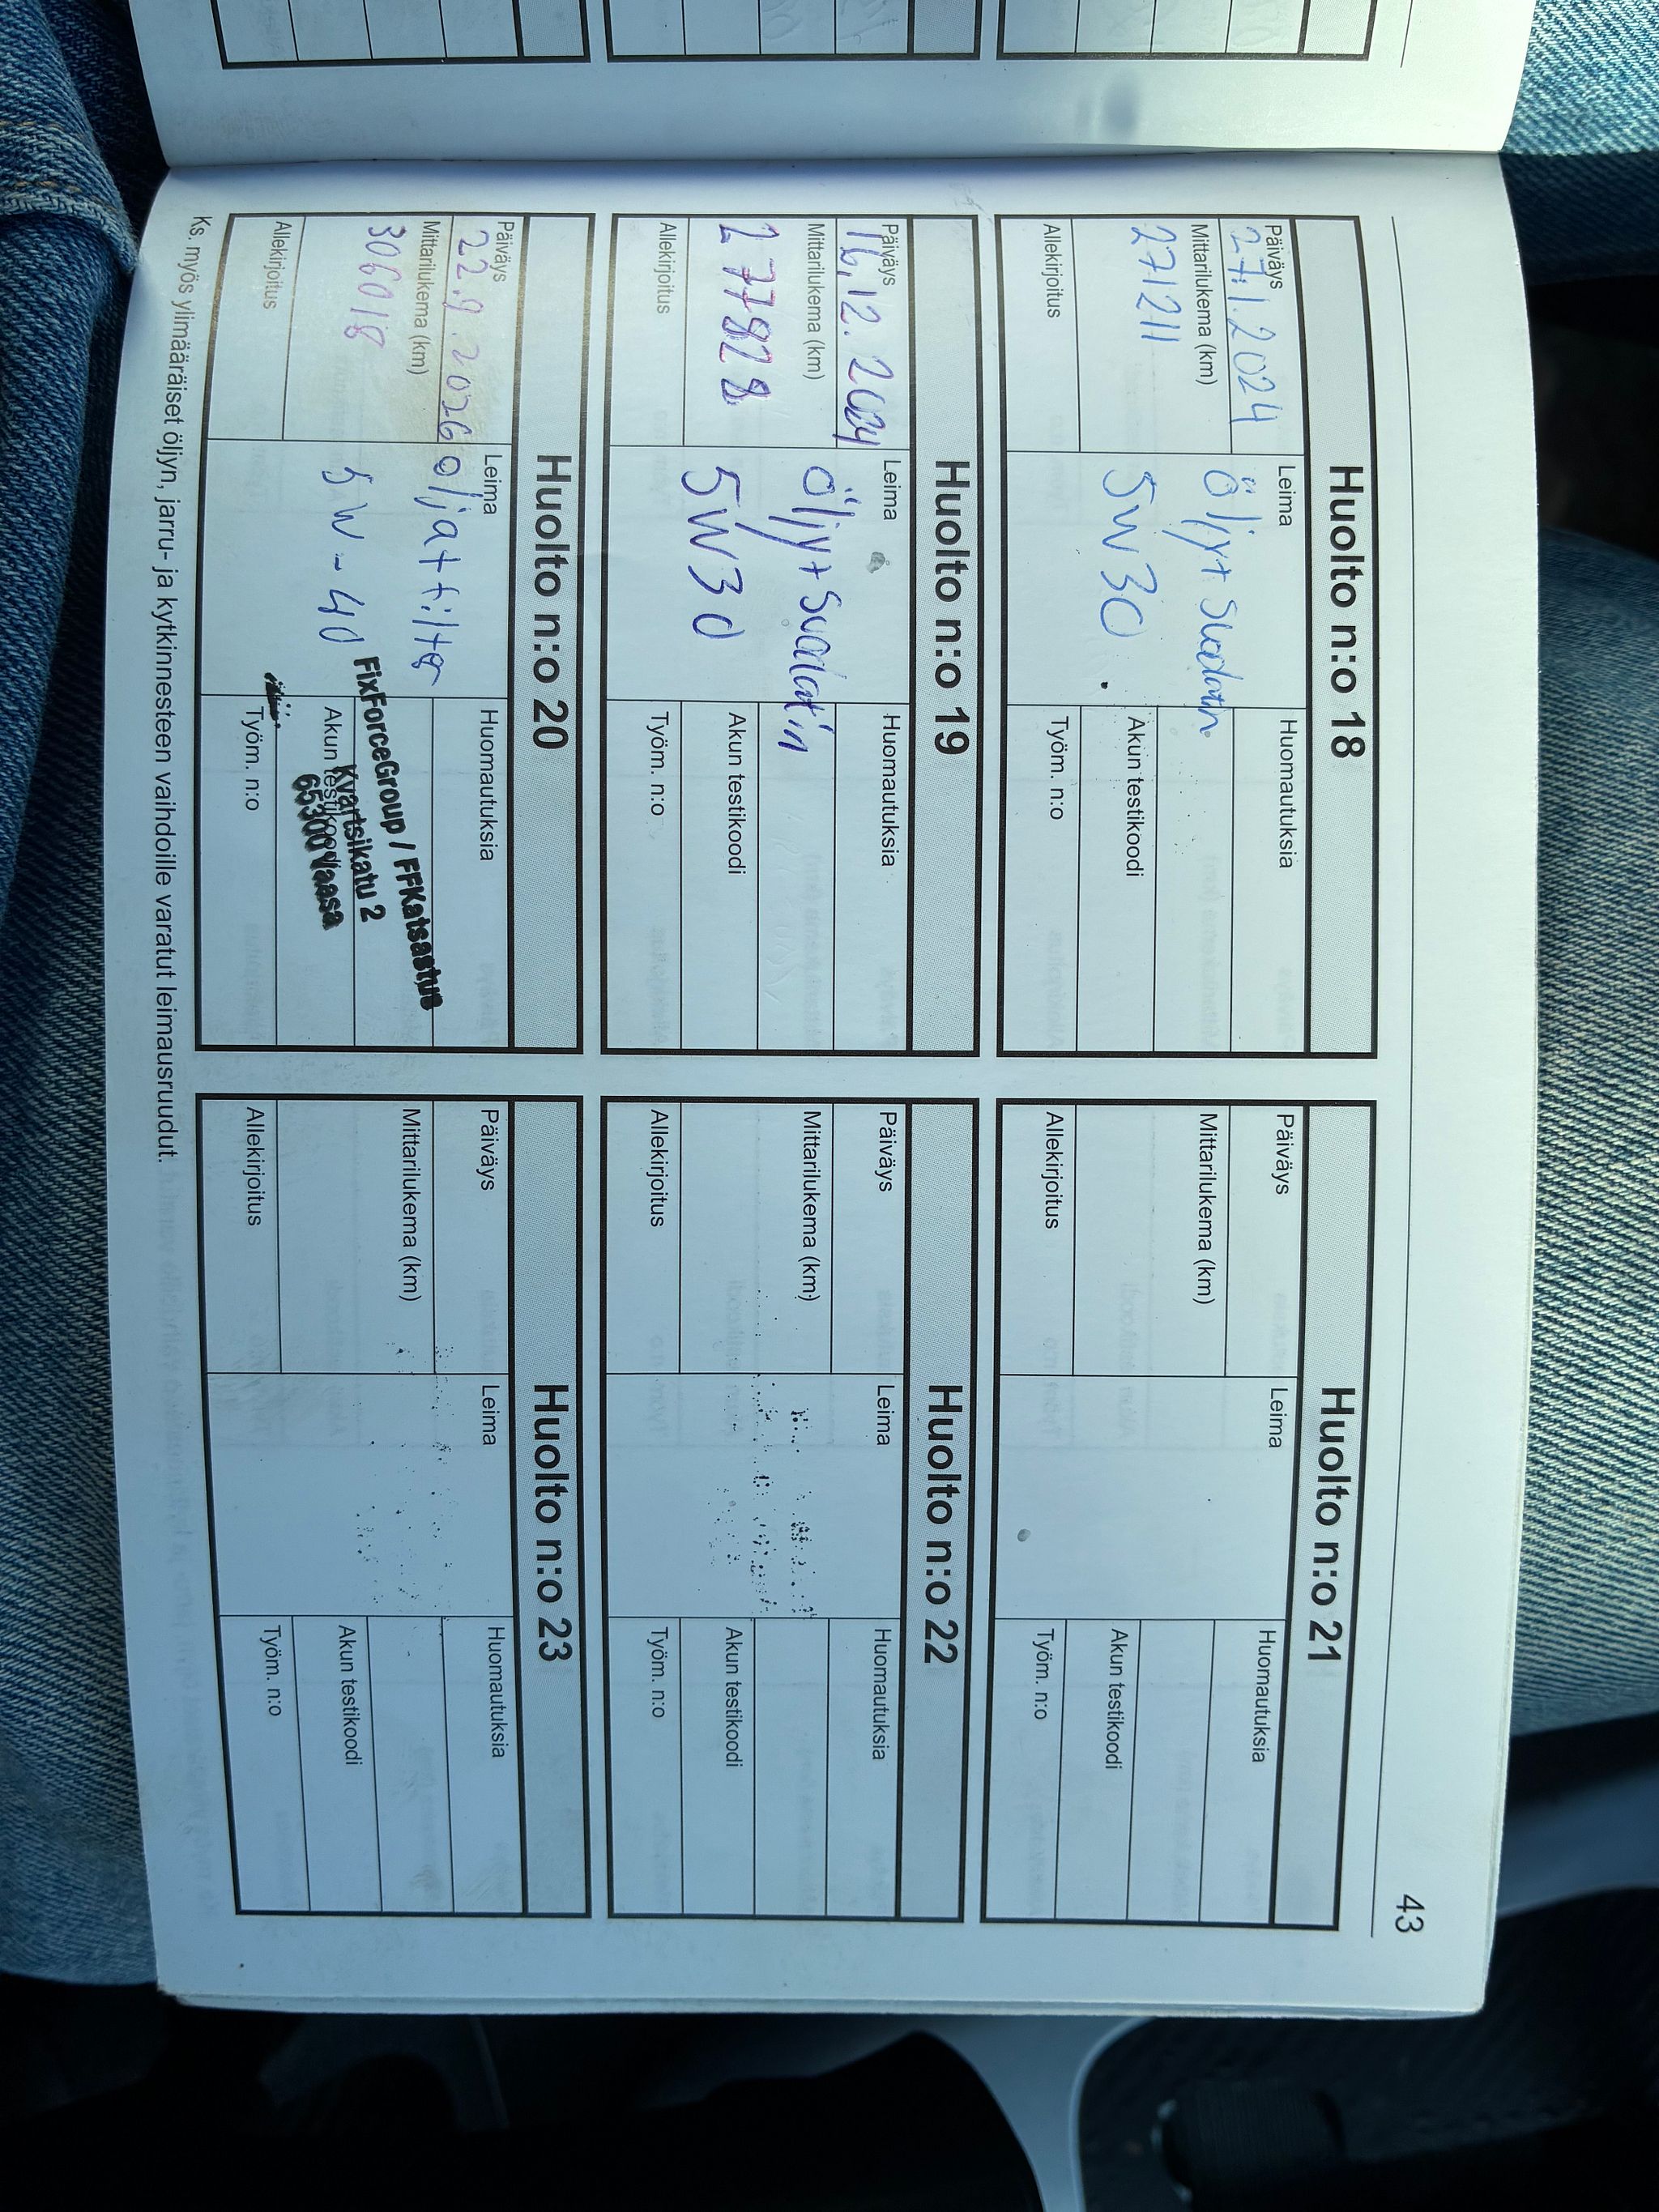 43
Huolto n:o 18
Päiväys
27.1.2024
Mittarilukema (km)
271211
Allekirjoitus
Leima
Öljy+ Suodatin
5W30
Huomautuksia
Akun testikoodi
Työm. n:o
Huolto n:o 21
Päiväys
Mittarilukema (km)
Allekirjoitus
Leima
Huomautuksia
Akun testikoodi
Työm. n:o
Huolto n:o 19
Päiväys
16.12.2024
Mittarilukema (km)
Allekirjoitus
Leima
Öljy+ Suodatin
5W30
Huomautuksia
Akun testikoodi
Työm. n:o
Huolto n:o 22
Päiväys
Mittarilukema (km)
Allekirjoitus
Leima
Huomautuksia
Akun testikoodi
Työm. n:o
Huolto n:o 20
Päiväys
Mittarilukema (km)
306018
Allekirjoitus
Leima
5W-40
Huomautuksia
FixForceGroup / FFKatsastus
Kvartsikatu 2
65300 Vaasa
Akun testikoodi
Työm. n:o
Huolto n:o 23
Päiväys
Mittarilukema (km)
Allekirjoitus
Leima
Huomautuksia
Akun testikoodi
Työm. n:o
Ks. myös ylimääräiset öljyn, jarru- ja kytkinnesteen vaihdoille varatut leimausruudut.